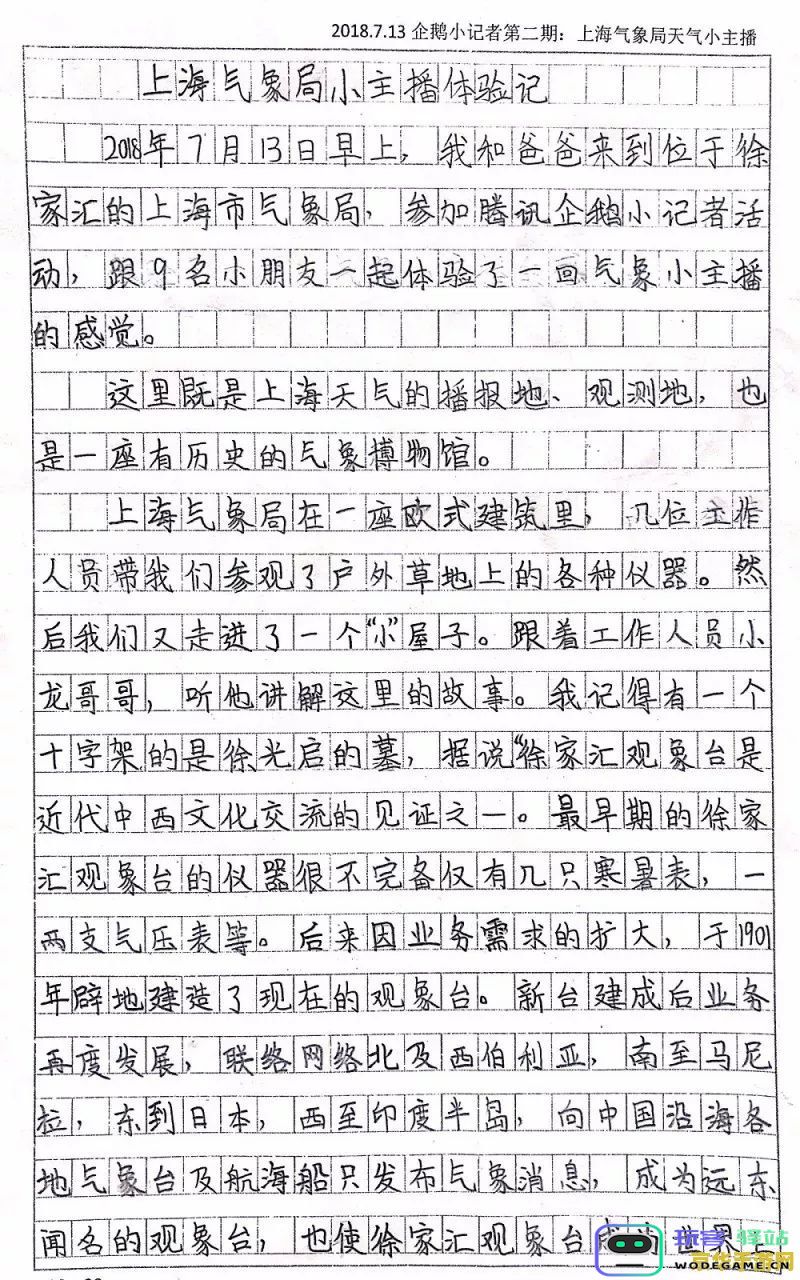 2018.7.13 企鹅小记者第二期：上海气象局天气小主播
上海气象局小主播体验记
2018年7月13日早上，我和爸爸来到位于徐
家汇的上海市气象局，参加腾讯企鹅小记者活
动，跟9名小朋友一起体验了一回气象小主播
的感觉。
这里既是上海天气的播报地、观测地，也
是一座有历史的气象博物馆。
上海气象局在一座欧式建筑里，几位工作
人员带我们参观了户外草地上的各种仪器。然
后我们又走进了一个“小”屋子。跟着工作人员小
龙哥哥，听他讲解这里的故事。我记得有一个
十字架的是徐光启的墓，据说“徐家汇观象台是
近代中西文化交流的见证之一。最早期的徐家
汇观象台的仪器很不完备仅有几只寒暑表，一
两支气压表等。后来因业务需求的扩大，于1901
年辟地建造了现在的观象台。新台建成后业务
再度发展，联络网络北及西伯利亚，南至马尼
拉，东到日本，西至印度半岛，向中国沿海各
地气象台及航海船只发布气象消息，成为远东
闻名的观象台，也使徐家汇观象台
驿站
WODEGAME.CN